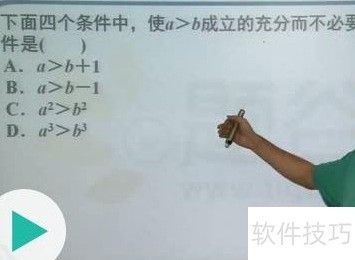 下面四个条件中，使a>b成立的充分而不必要
件是(　　)
A．a>b+1
B．a>b−1
C．a²>b²
D．a³>b³
软件技巧